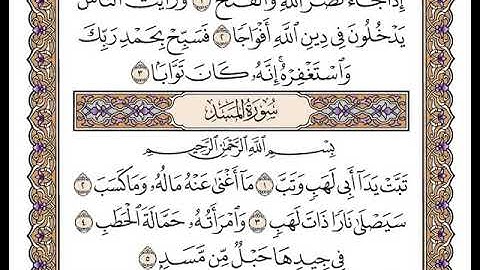 إِذَا جَآءَ نَصْرُ ٱللَّهِ وَٱلْفَتْحُ ١ وَرَأَيْتَ ٱلنَّاسَ
يَدْخُلُونَ فِى دِينِ ٱللَّهِ أَفْوَاجًا ٢ فَسَبِّحْ بِحَمْدِ رَبِّكَ
وَٱسْتَغْفِرْهُ ۚ إِنَّهُۥ كَانَ تَوَّابًۢا ٣
سُورَةُ المَسَدِ
بِسْمِ ٱللَّهِ ٱلرَّحْمَٰنِ ٱلرَّحِيمِ
تَبَّتْ يَدَآ أَبِى لَهَبٍ وَتَبَّ ١ مَآ أَغْنَىٰ عَنْهُ مَالُهُۥ وَمَا كَسَبَ ٢
سَيَصْلَىٰ نَارًا ذَاتَ لَهَبٍ ٣ وَٱمْرَأَتُهُۥ حَمَّالَةَ ٱلْحَطَبِ ٤
فِى جِيدِهَا حَبْلٌ مِّن مَّسَدٍۭ ٥